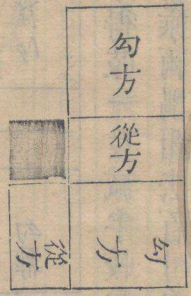 勾方
從方
勾方
從方